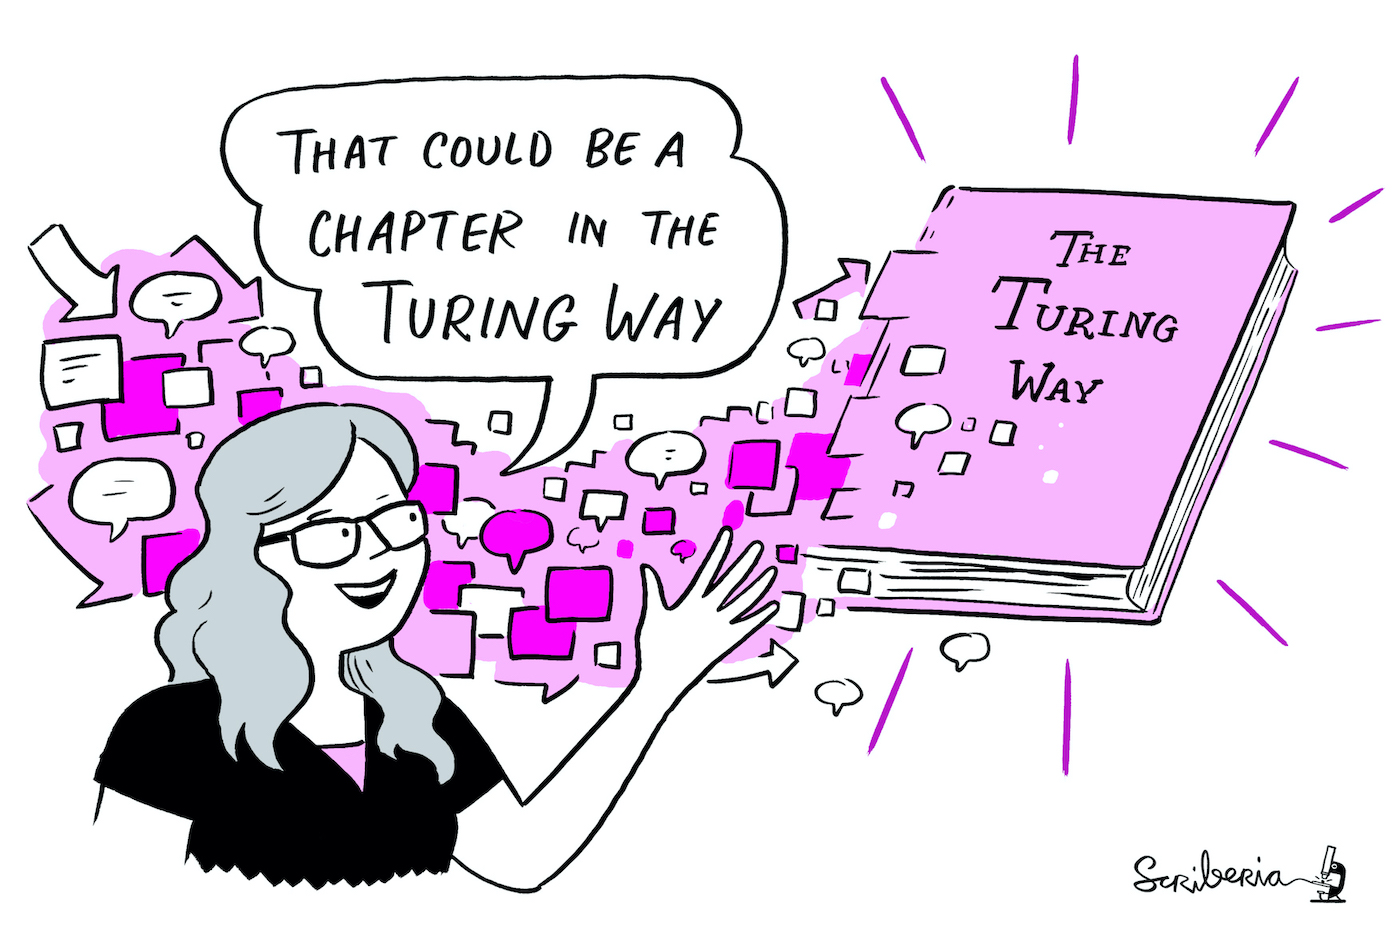 THAT COULD BE A
CHAPTER IN THE
TURING WAY
THE
TURING
WAY
Scriberia